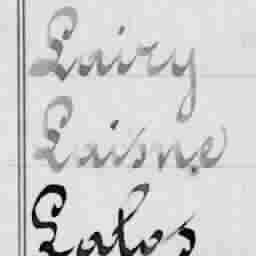 Lairy
Laisne
Lalos